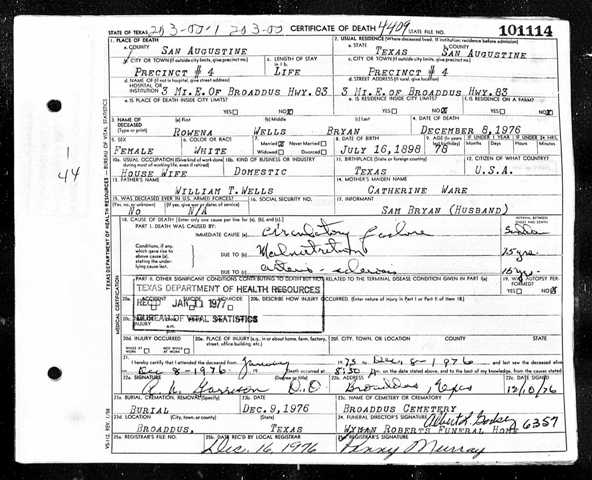 STATE OF TEXAS 203-00-1 203-00 CERTIFICATE OF DEATH 4409 STATE FILE NO. 101114
1. PLACE OF DEATH 2. USUAL RESIDENCE (Where deceased lived. If institution: residence before admission)
a. COUNTY SAN AUGUSTINE a. STATE TEXAS b. COUNTY SAN AUGUSTINE
b. CITY OR TOWN (If outside city limits, give precinct no.) c. LENGTH OF STAY c. CITY OR TOWN (If outside city limits, give precinct no.)
PRECINCT # 4 LIFE PRECINCT # 4
d. NAME OF (If not in hospital, give street address) HOSPITAL OR INSTITUTION 3 MI.E.OF BROADDUS HWY.83 d. STREET ADDRESS 3 MI.E. OF BROADDUS HWY.83
e. IS PLACE OF DEATH INSIDE CITY LIMITS? e. IS RESIDENCE INSIDE CITY LIMITS? f. IS RESIDENCE ON A FARM?
YES NO YES NO YES NO
3. NAME OF DECEASED (a) First (b) Middle (c) Last 4. DATE OF DEATH
ROWENA WELLS BRYAN DECEMBER 8, 1976
5. SEX 6. COLOR OR RACE 7. Married Never Married Widowed Divorced 8. DATE OF BIRTH 9. AGE IF UNDER 1 YEAR IF UNDER 24 HRS.
FEMALE WHITE JULY 16, 1898 78 Months Days Hours Minutes
10a. USUAL OCCUPATION (Give kind of work done during most of working life, even if retired) 10b. KIND OF BUSINESS OR INDUSTRY 11. BIRTHPLACE (State or foreign country) 12. CITIZEN OF WHAT COUNTRY?
HOUSE WIFE DOMESTIC TEXAS U.S.A.
13. FATHER'S NAME 14. MOTHER'S MAIDEN NAME
WILLIAM T. WELLS CATHERINE WARE
15. WAS DECEASED EVER IN U.S. ARMED FORCES? 16. SOCIAL SECURITY NO. 17. INFORMANT
NO N/A SAM BRYAN (HUSBAND)
18. CAUSE OF DEATH [Enter only one cause per line for (a), (b), and (c).] INTERVAL BETWEEN ONSET AND DEATH
PART I. DEATH WAS CAUSED BY:
IMMEDIATE CAUSE (a) Circulatory Failure
Conditions, if any, which gave rise to above cause (a), stating the underlying cause last.
DUE TO (b) Malnutrition
DUE TO (c) arterio-sclerosis
PART II. OTHER SIGNIFICANT CONDITIONS CONTRIBUTING TO DEATH BUT NOT RELATED TO THE TERMINAL DISEASE CONDITION GIVEN IN PART I(a) 19. WAS AUTOPSY PERFORMED?
TEXAS DEPARTMENT OF HEALTH RESOURCES YES NO
20a. ACCIDENT SUICIDE HOMICIDE 20b. DESCRIBE HOW INJURY OCCURRED. (Enter nature of injury in Part I or Part II of item 18.)
REC'D JAN 11 1977
BUREAU OF VITAL STATISTICS
INJURY a.m. p.m.
20d. INJURY OCCURRED 20e. PLACE OF INJURY (e.g., in or about home, farm, factory, street, office building, etc.) 20f. CITY, TOWN, OR LOCATION COUNTY STATE
WHILE AT WORK NOT WHILE AT WORK
21. I hereby certify that I attended the deceased from January 1975 to Dec. 8-1976 and last saw the deceased alive
on Dec 8-1976. Death occurred at 8:30 on the date stated above, and to the best of my knowledge, from the causes stated.
22a. SIGNATURE (Degree or title) 22b. ADDRESS 22c. DATE SIGNED
Garrison D.O Broaddus, Texas 12/10/76
23a. BURIAL, CREMATION, REMOVAL (Specify) 23b. DATE 23c. NAME OF CEMETERY OR CREMATORY
BURIAL DEC.9,1976 BROADDUS CEMETERY
23d. LOCATION (City, town, or county) (State) 24. FUNERAL DIRECTOR'S SIGNATURE 6357
BROADDUS, TEXAS WYMAN ROBERTS FUNERAL HOME
25a. REGISTRAR'S FILE NO. 25b. DATE REC'D BY LOCAL REGISTRAR 25c. REGISTRAR'S SIGNATURE
Dec. 16, 1976 Penny Murray
1
44
TEXAS DEPARTMENT OF HEALTH RESOURCES — BUREAU OF VITAL STATISTICS
MEDICAL CERTIFICATION